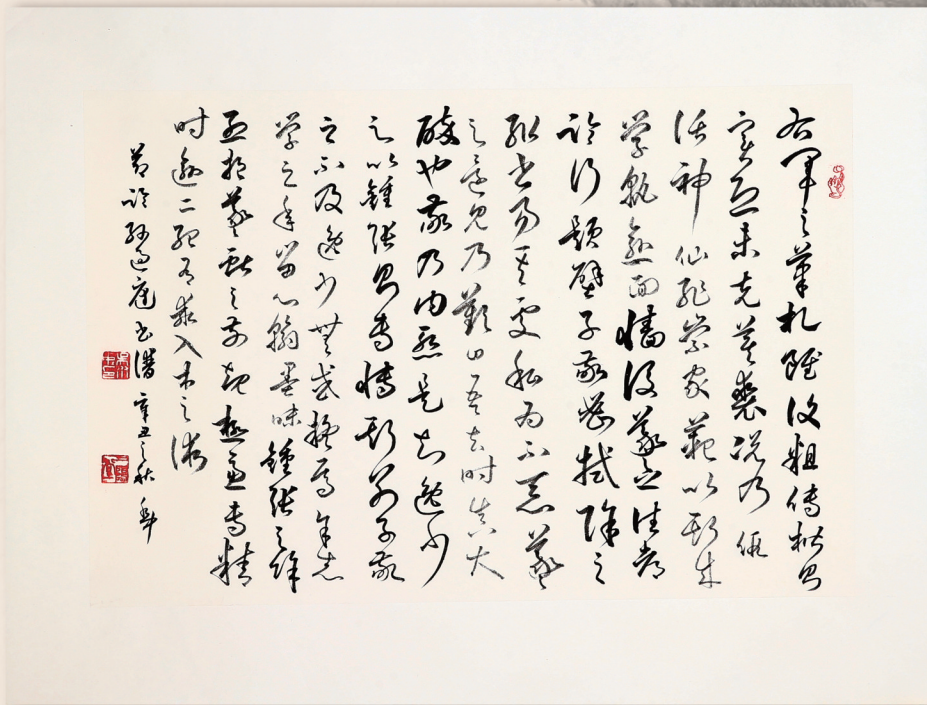 右軍之筆札雖復粗傳楷則
實恐未克箕裘況乃假
託神仙耻崇家範以斯成
学孰愈面墻後羲之往都
臨行題壁子敬密拭除之
輒書易其處私為不惡羲
之還見乃歎曰吾去時真大
醉也敬乃内慙是知逸少
之比鍾張則專博斯別子敬
之不及逸少無或疑焉余志
学之年留心翰墨味鍾張之餘
烈挹羲獻之前規極慮專精
時逾二紀有乖入木之術
節臨孫過庭書譜 辛丑之秋